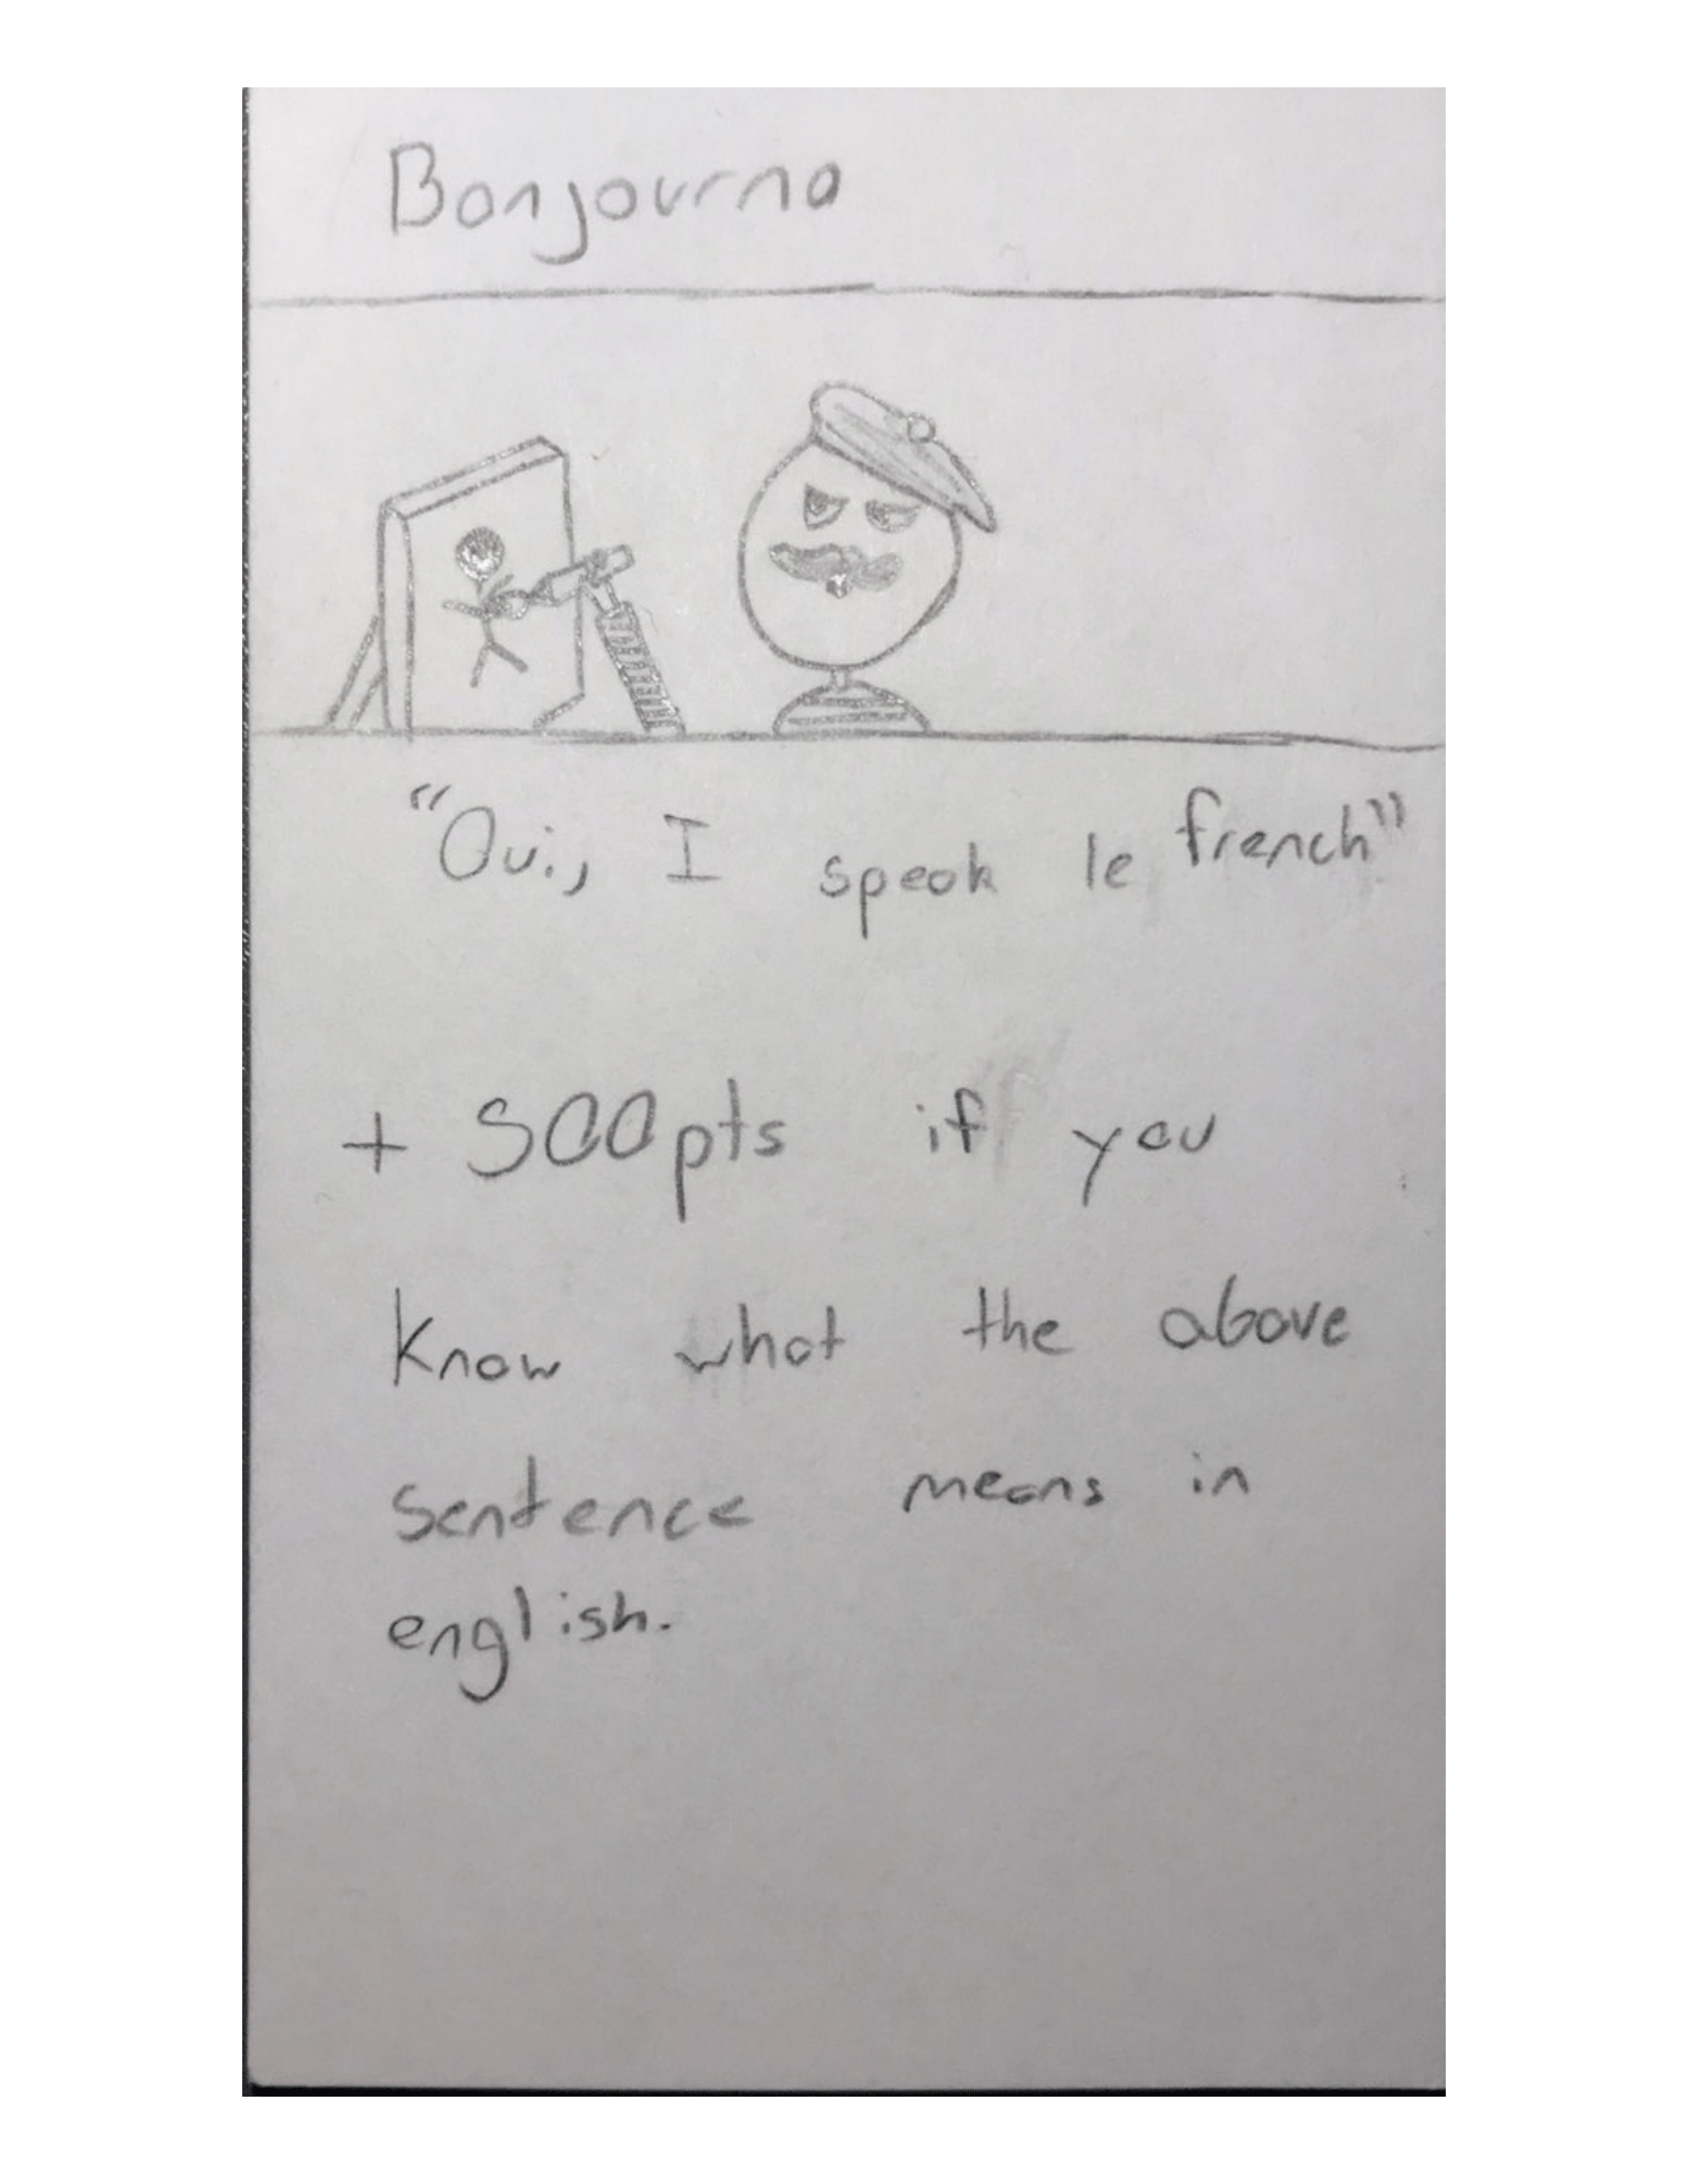 Bonjourno
"Oui, I speak le french"
+ 500pts if you
know what the above
sentence means in
english.